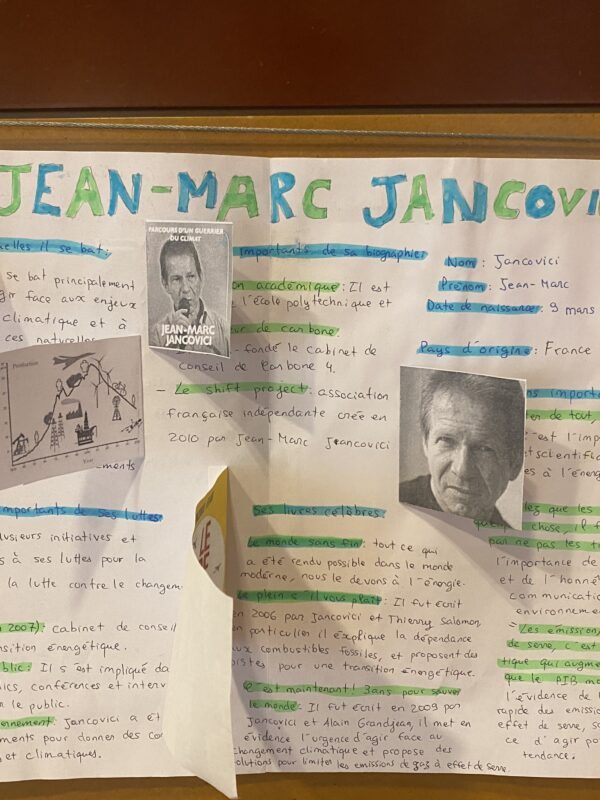 JEAN-MARC JANCOVI
uelles il se bat:
se bat principalement
gir face aux enjeux
climatique et à
ces naturelles
Production
Year
ments
importants de ses luttes
lusieurs initiatives et
s à ses luttes pour la
la lutte contre le changem
n 2007): cabinet de conseil
nsition énergétique.
blic: Il s'est impliqué da
ics, conférences et interv
le public.
ernement: Jancovici a ét
ments pour donner des con
et climatiques.
PARCOURS D'UN GUERRIER
DU CLIMAT
JEAN-MARC
JANCOVICI
importants de sa biographie:
on académique: Il est
l'école polytechnique et
eur de carbone:
-fondé le cabinet de
conseil de Carbone 4.
- Le shift project: association
française indépendante crée en
2010 par Jean-Marc Jancovici
Ses livres célèbres:
Le monde sans fin: tout ce qui
a été rendu possible dans le monde
moderne, nous le devons à l'énergie.
e plein s'il vous plaît: Il fut écrit
en 2006 par Jancovici et Thierry Salomon
en particulier il explique la dépendance
aux combustibles fossiles, et proposent des
pistes pour une transition énergétique.
C'est maintenant! 3ans pour sauver
le monde: Il fut écrit en 2009 par
Jancovici et Alain Grandjean, il met en
évidence l'urgence d'agir face au
changement climatique et propose des
olutions pour limiter les emissions de gaz à effet de serre.
Nom: Jancovici
Prénom: Jean-Marc
Date de naissance: 9 mars
Pays d'origine: France
ns importa
er de tout,
c'est l'imp
scientifi
es à l'énerg
lez que les
chose, il f
par ne pas les tr
l'importance de
et de l'honnê
communicati
environneme
= Les émissions
de serre, c'est
tique qui augme
que le PIB mo
l'évidence de l
rapide des emission
effet de serre, so
ce d'agir po
tendance.